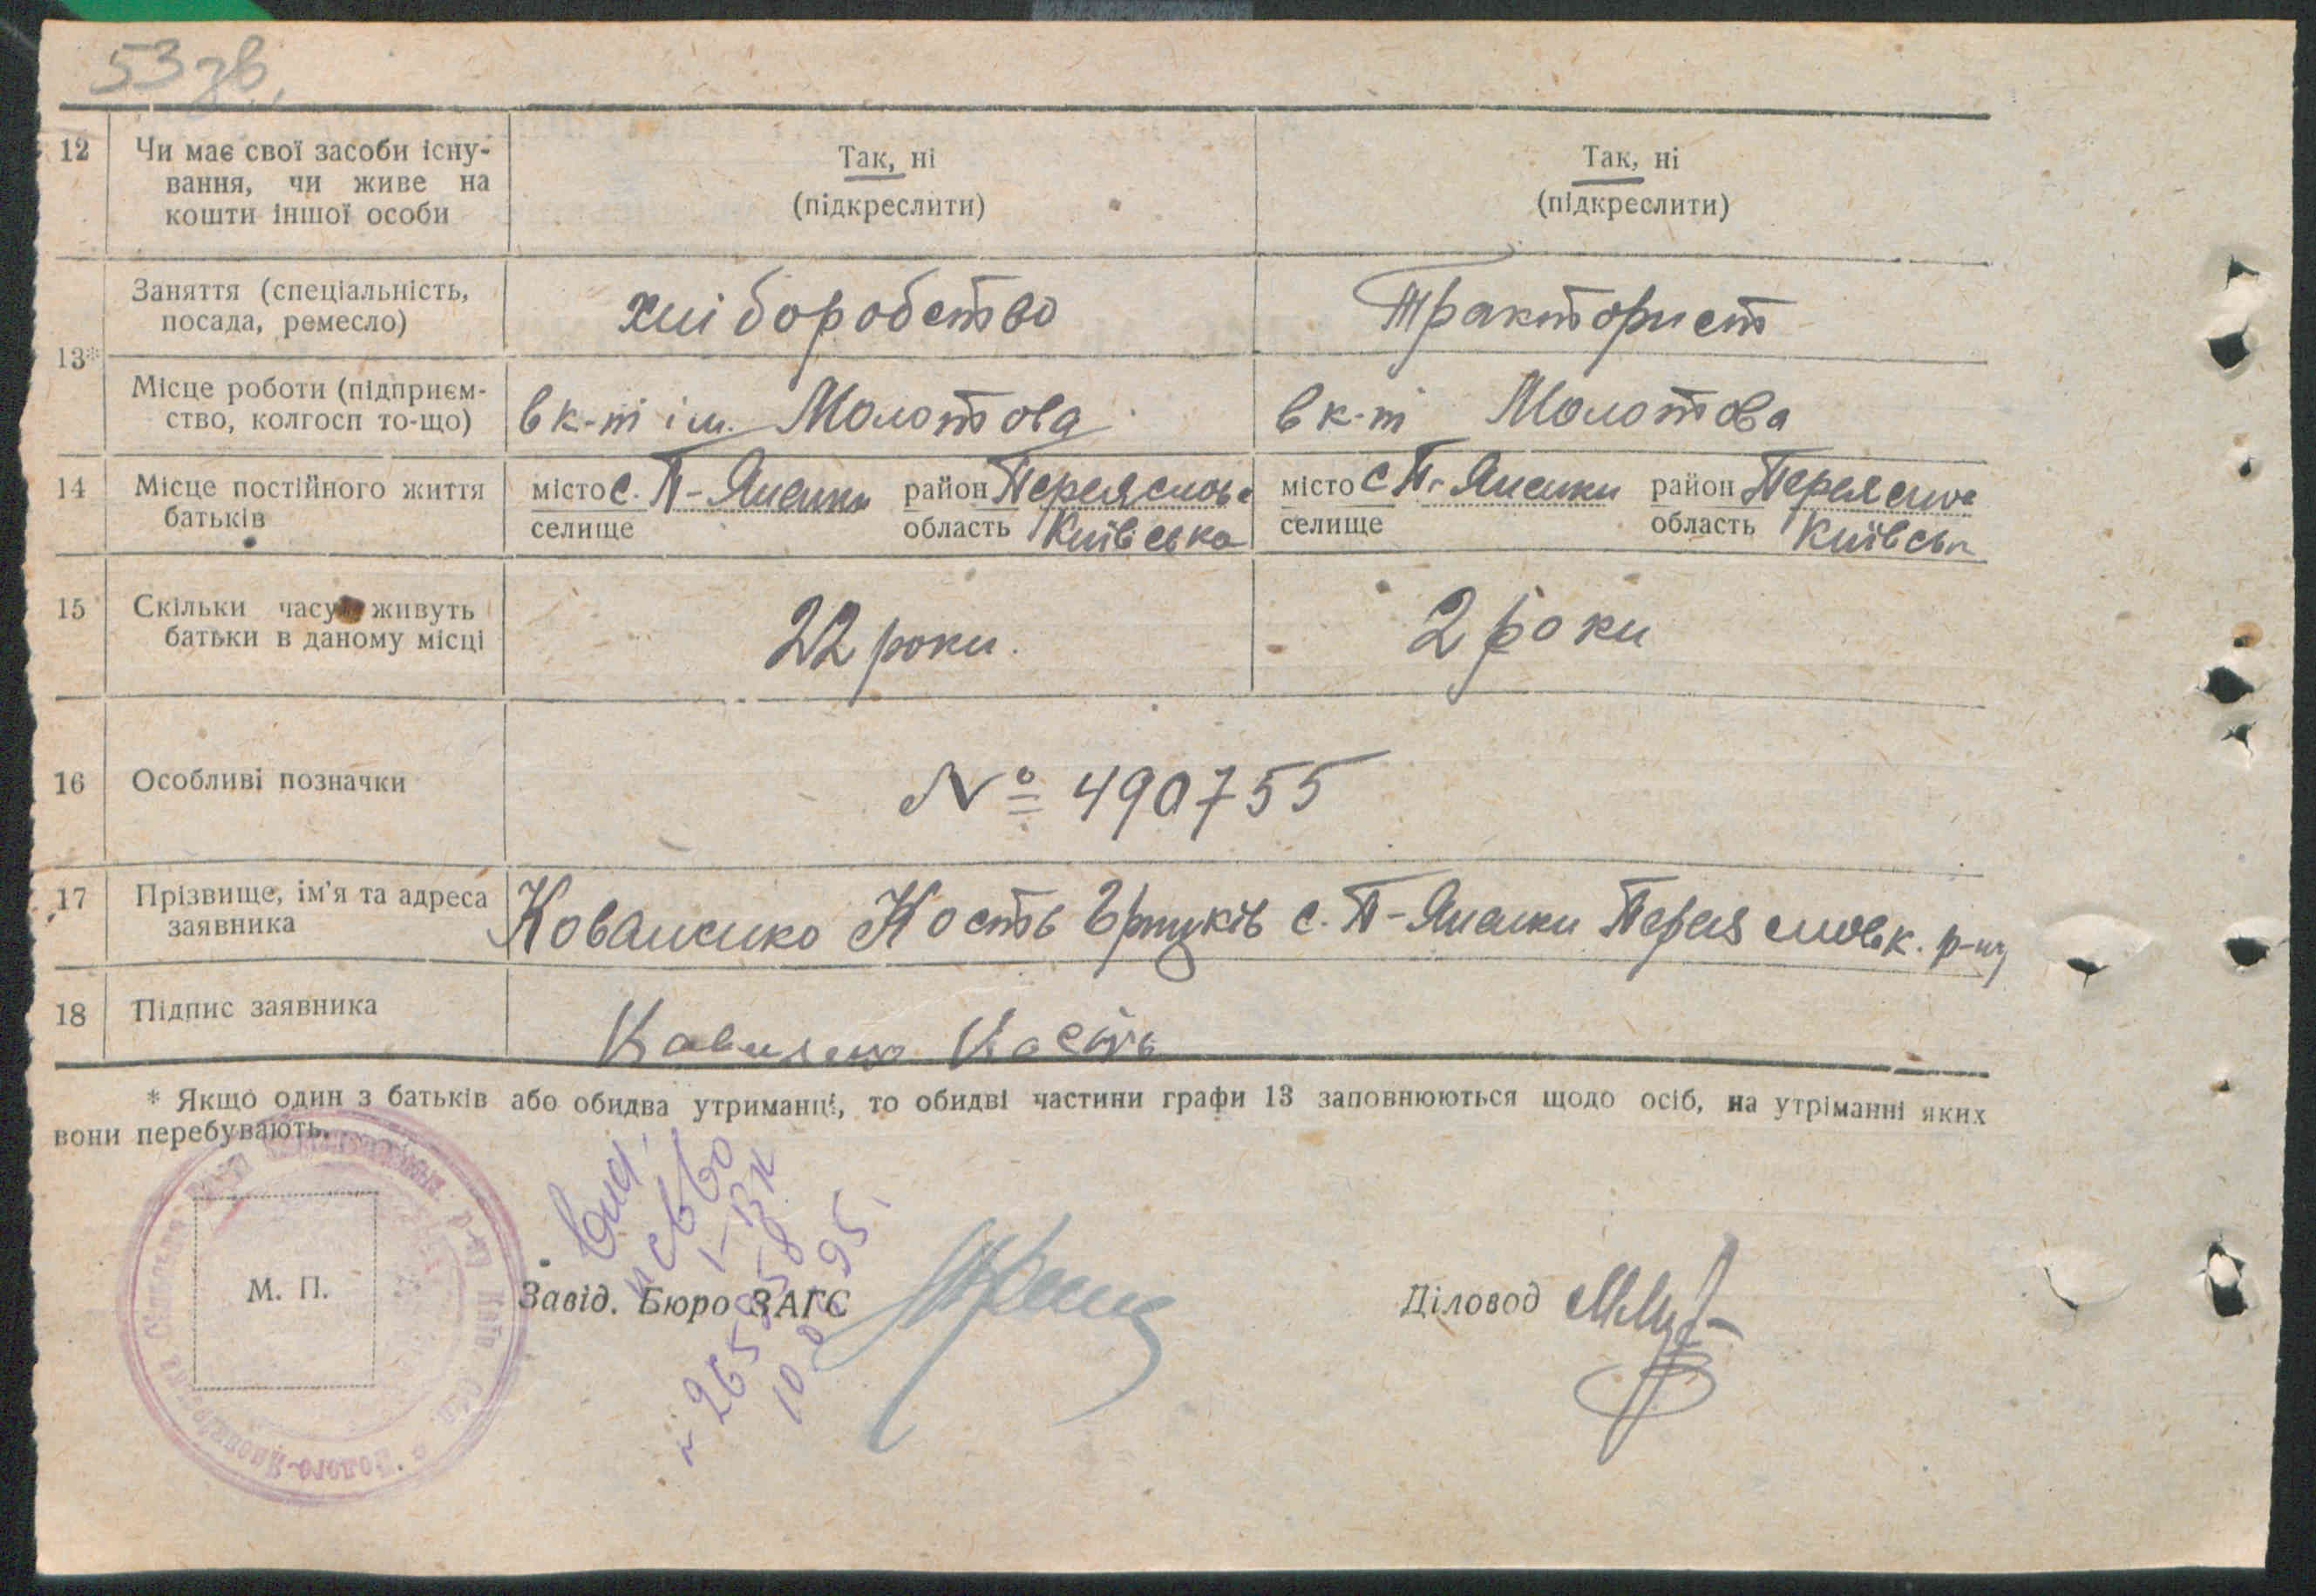 53 зв.
12 Чи має свої засоби існу- Так, ні Так, ні
вання, чи живе на (підкреслити) (підкреслити)
кошти іншої особи
13* Заняття (спеціальність, хліборобство Тракторист
посада, ремесло)
Місце роботи (підприєм- в к-т ім. Молотова в к-т Молотова
ство, колгосп то-що)
14 Місце постійного життя місто с. П-Яненки район Переяслове місто с П-Яненки район Переяслов
батьків селище область Київська селище область Київськ
15 Скільки часу живуть 22 роки. 2 роки
батьки в даному місці
16 Особливі позначки № 490755
17 Прізвище, ім'я та адреса Коваленко Кость с. П-Яненки Переясловск. р-ну
заявника
18 Підпис заявника Кость
* Якщо один з батьків або обидва утриманці, то обидві частини графи 13 заповнюються щодо осіб, на утріманні яких
вони перебувають.
М. П.
Завід. Бюро ЗАГС
Діловод
вид.
св-во
1-БК
265858
95.